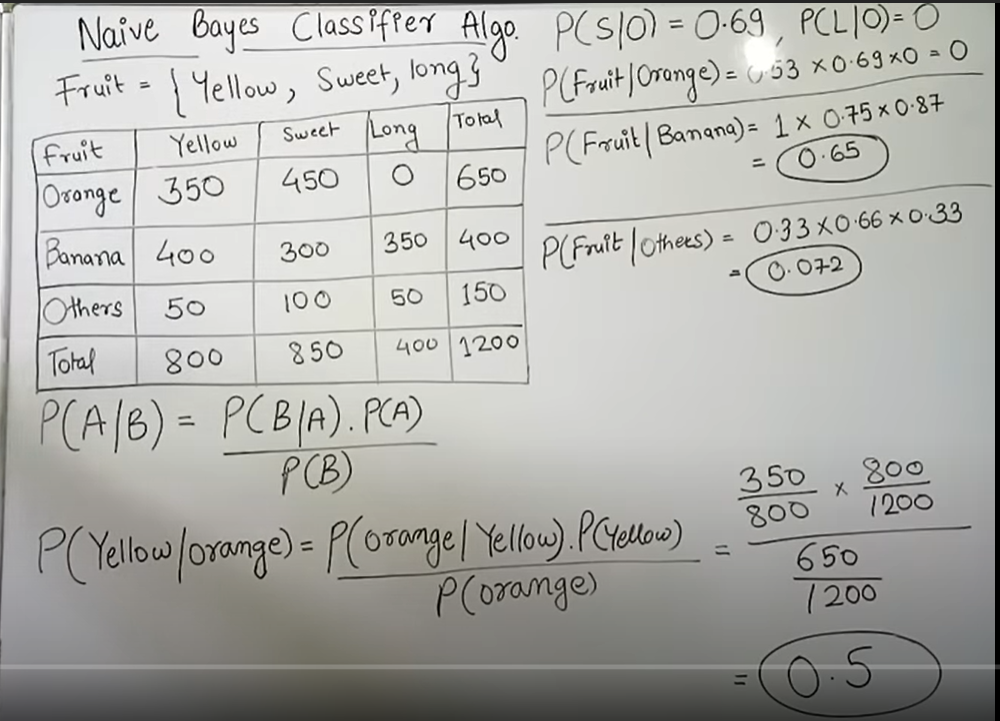 Naive Bayes Classifier Algo.
Fruit = { Yellow, Sweet, long}
Fruit Yellow Sweet Long Total
Orange 350 450 0 650
Banana 400 300 350 400
Others 50 100 50 150
Total 800 850 400 1200
P(A/B) = P(B/A). P(A)
P(B)
P(Yellow/orange) = P(orange/Yellow).P(Yellow)
P(orange)
= 350/800 × 800/1200
650/1200
= 0.5
P(S/O) = 0.69, P(L/O) = 0
P(Fruit/Orange) = 0.53 × 0.69 × 0 = 0
P(Fruit/Banana) = 1 × 0.75 × 0.87
= 0.65
P(Fruit/Others) = 0.33 × 0.66 × 0.33
= 0.072